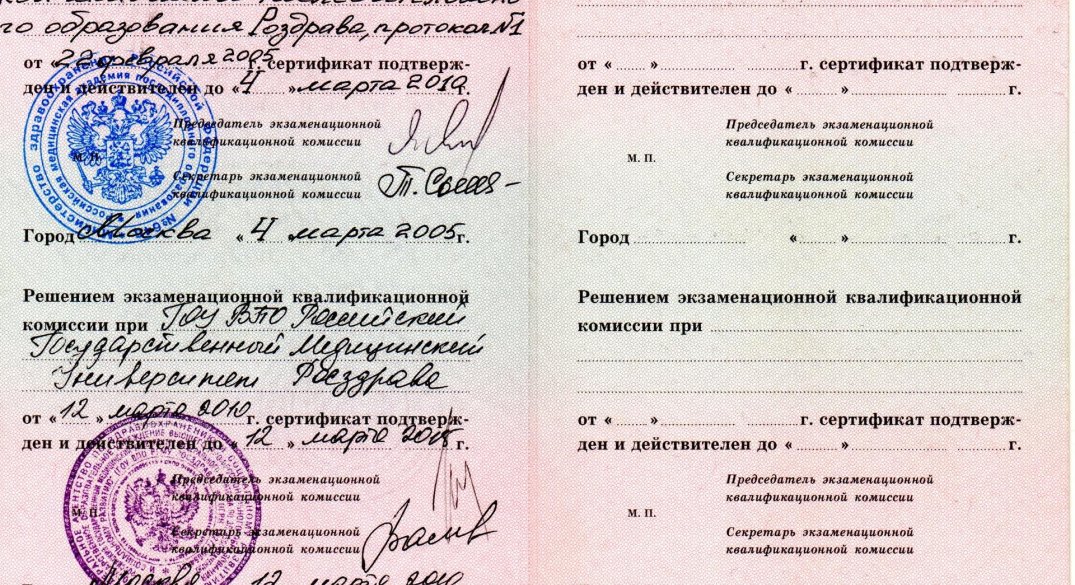 го образования Росздрава, протокол №1
от «22» февраля 2005 г. сертификат подтверж-
ден и действителен до «4» марта 2010 г.
Председатель экзаменационной
квалификационной комиссии
М. П.
Секретарь экзаменационной
квалификационной комиссии
Город Москва «4» марта 2005 г.
Решением экзаменационной квалификационной
комиссии при ГОУ ВПО Российский
Государственный Медицинский
Университет Росздрава
от «12» марта 2010 г. сертификат подтверж-
ден и действителен до «12» марта 2015 г.
Председатель экзаменационной
квалификационной комиссии
М. П.
Секретарь экзаменационной
квалификационной комиссии
Москва 12 марта 2010
от « » г. сертификат подтверж-
ден и действителен до « » г.
Председатель экзаменационной
квалификационной комиссии
М. П.
Секретарь экзаменационной
квалификационной комиссии
Город « » г.
Решением экзаменационной квалификационной
комиссии при
от « » г. сертификат подтверж-
ден и действителен до « » г.
Председатель экзаменационной
квалификационной комиссии
М. П.
Секретарь экзаменационной
квалификационной комиссии